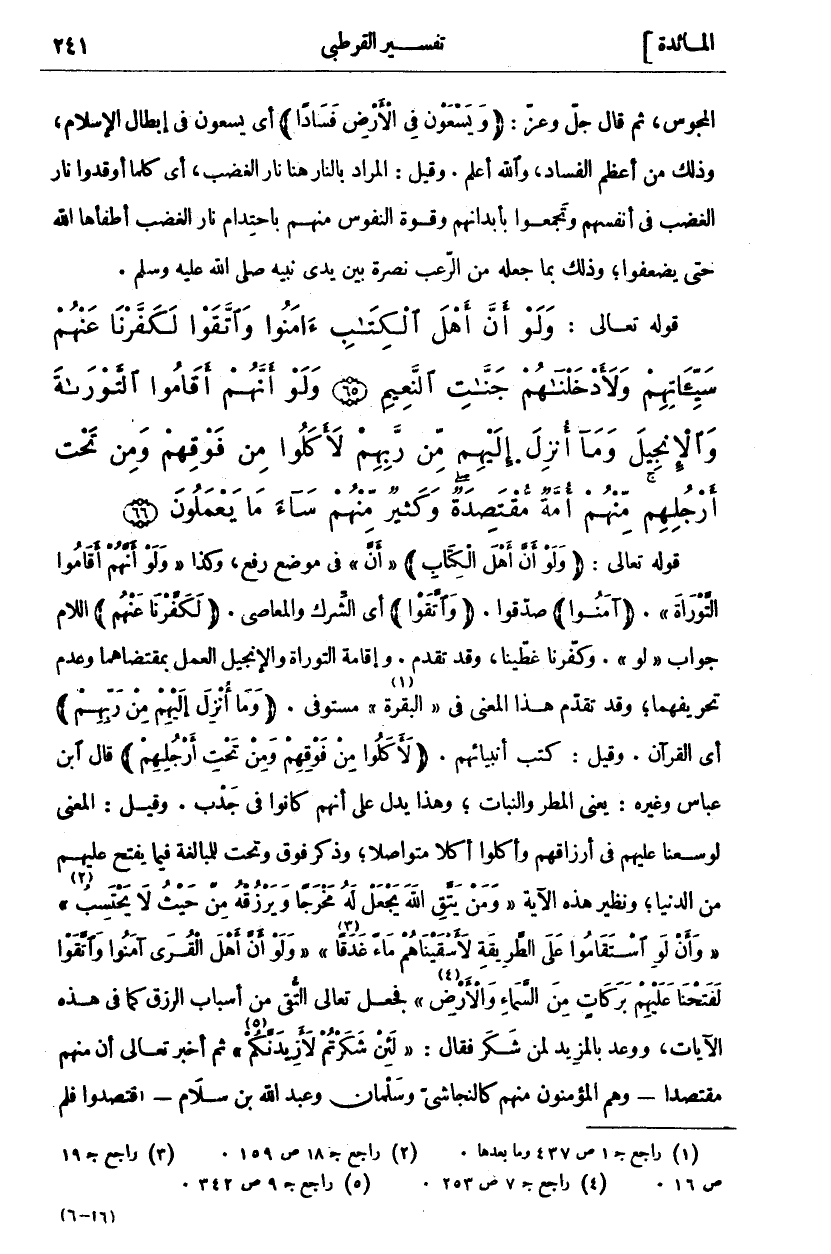 المائدة ] تفسير القرطبى ٢٤١
المجوس، ثم قال جلّ وعزّ : ﴿ وَيَسْعَوْنَ فِى الْأَرْضِ فَسَادًا ﴾ أى يسعون فى إبطال الإسلام،
وذلك من أعظم الفساد، والله أعلم . وقيل : المراد بالنار هنا نار الغضب، أى كلما أوقدوا نار
الغضب فى أنفسهم وتجمّعوا بأبدانهم وقوة النفوس منهم باحتِدام نار الغضب أطفأها الله
حتى يضعفوا؛ وذلك بما جعله من الرّعب نصرة بين يدى نبيه صلى الله عليه وسلم .
قوله تعالى : وَلَوْ أَنَّ أَهْلَ ٱلْكِتَٰبِ ءَامَنُوا وَٱتَّقَوْا لَكَفَّرْنَا عَنْهُمْ
سَيِّئَاتِهِمْ وَلَأَدْخَلْنَٰهُمْ جَنَّٰتِ ٱلنَّعِيمِ ﴿٦٥﴾ وَلَوْ أَنَّهُمْ أَقَامُوا ٱلتَّوْرَىٰةَ
وَٱلْإِنجِيلَ وَمَآ أُنزِلَ إِلَيْهِم مِّن رَّبِّهِمْ لَأَكَلُوا مِن فَوْقِهِمْ وَمِن تَحْتِ
أَرْجُلِهِم ۚ مِّنْهُمْ أُمَّةٌ مُّقْتَصِدَةٌ ۖ وَكَثِيرٌ مِّنْهُمْ سَآءَ مَا يَعْمَلُونَ ﴿٦٦﴾
قوله تعالى : ﴿ وَلَوْ أَنَّ أَهْلَ الْكِتَابِ ﴾ « أَنَّ » فى موضع رفع، وكذا « وَلَوْ أَنَّهُمْ أَقَامُوا
التَّوْرَاةَ » . ﴿ آمَنُوا ﴾ صدّقوا . ﴿ وَٱتَّقَوْا ﴾ أى الشّرك والمعاصى . ﴿ لَكَفَّرْنَا عَنْهُم ﴾ اللام
جواب « لو » . وكفّرنا غطّينا، وقد تقدم . وإقامة التوراة والإنجيل العمل بمقتضاهما وعدم
تحريفهما؛ وقد تقدّم هذا المعنى فى « البقرة »(١) مستوفى . ﴿ وَمَا أُنْزِلَ إِلَيْهِمْ مِنْ رَبِّهِمْ ﴾
أى القرآن . وقيل : كتب أنبيائهم . ﴿ لَأَكَلُوا مِنْ فَوْقِهِمْ وَمِنْ تَحْتِ أَرْجُلِهِمْ ﴾ قال ٱبن
عباس وغيره : يعنى المطر والنبات ؛ وهذا يدل على أنهم كانوا فى جَدْب . وقيل : المعنى
لوسعنا عليهم فى أرزاقهم وأكلوا أكلا متواصلا؛ وذكر فوق وتحت للمبالغة فيما يفتح عليهم
من الدنيا؛ ونظير هذه الآية « وَمَنْ يَتَّقِ اللهَ يَجْعَلْ لَهُ مَخْرَجًا وَيَرْزُقْهُ مِنْ حَيْثُ لَا يَحْتَسِبُ »(٢)
« وَأَنْ لَوِ ٱسْتَقَامُوا عَلَى الطَّرِيقَةِ لَأَسْقَيْنَاهُمْ مَاءً غَدَقًا »(٣) « وَلَوْ أَنَّ أَهْلَ الْقُرَى آمَنُوا وَٱتَّقَوْا
لَفَتَحْنَا عَلَيْهِمْ بَرَكَاتٍ مِنَ السَّمَاءِ وَالْأَرْضِ »(٤) فجعل تعالى التُّقَى من أسباب الرزق كما فى هذه
الآيات، ووعد بالمزيد لمن شَكَر فقال : « لَئِنْ شَكَرْتُمْ لَأَزِيدَنَّكُمْ »(٥) ثم أخبر تعالى أن منهم
مقتصدا — وهم المؤمنون منهم كالنجاشىّ وسَلْمان وعبد الله بن سلَام — اقتصدوا فلم
(١) راجع جـ ١ ص ٤٣٧ وما بعدها . (٢) راجع جـ ١٨ ص ١٥٩ . (٣) راجع جـ ١٩
ص ١٦ . (٤) راجع جـ ٧ ص ٢٥٣ . (٥) راجع جـ ٩ ص ٣٤٢ .
(١٦-٦)